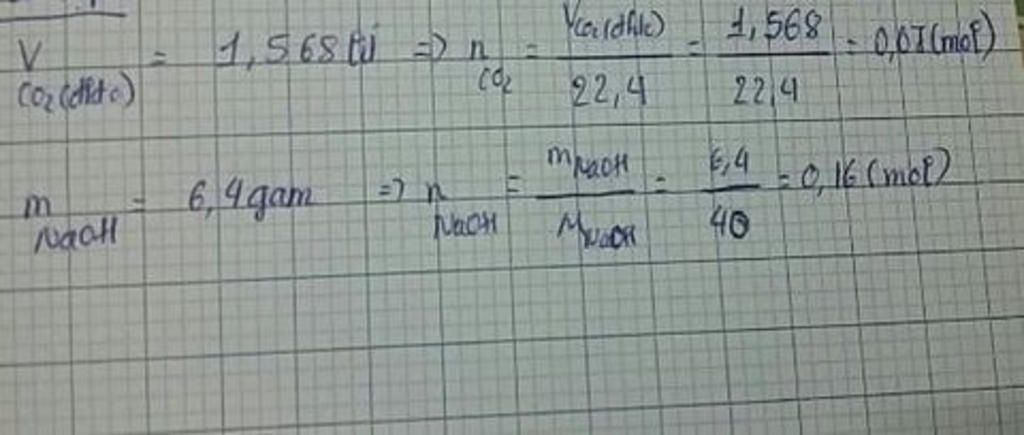 V CO₂(đktc) = 1,568 lít => n CO₂ = V CO₂(đktc) / 22,4 = 1,568 / 22,4 = 0,07 (mol)
m NaOH = 6,4 gam => n NaOH = m NaOH / M NaOH = 6,4 / 40 = 0,16 (mol)